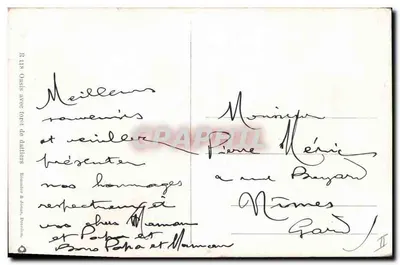 R 113 Oasis avec forêt de dattiers
Meilleurs
souvenirs
et veuillez
présenter
nos hommages
respectueux à
vos chers Maman
et Papa et
Bons Papa et Maman
Monsieur
Pierre Méric
rue Bayard
Nîmes
Gard
II
CARTE